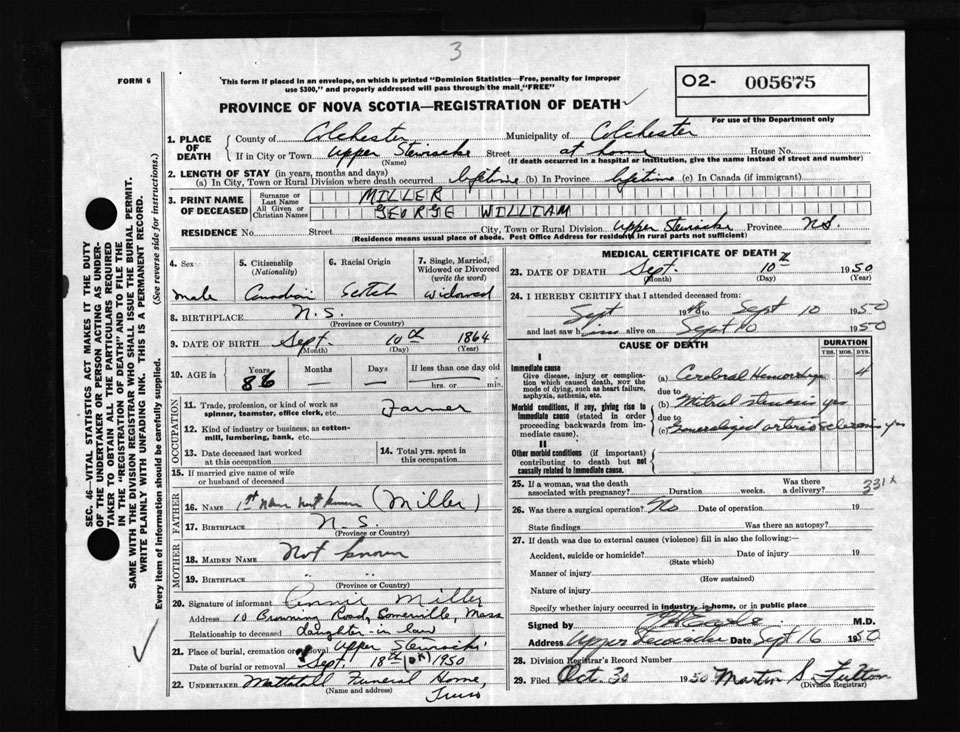 3
FORM 6
This form if placed in an envelope, on which is printed "Dominion Statistics—Free, penalty for improper
use $300," and properly addressed will pass through the mail "FREE"
PROVINCE OF NOVA SCOTIA—REGISTRATION OF DEATH
O2- 005675
For use of the Department only
SEC. 46—VITAL STATISTICS ACT MAKES IT THE DUTY
OF THE UNDERTAKER OR PERSON ACTING AS UNDER-
TAKER TO OBTAIN ALL THE PARTICULARS REQUIRED
IN THE "REGISTRATION OF DEATH" AND TO FILE THE
SAME WITH THE DIVISION REGISTRAR WHO SHALL ISSUE THE BURIAL PERMIT.
WRITE PLAINLY WITH UNFADING INK. THIS IS A PERMANENT RECORD.
Every item of information should be carefully supplied. (See reverse side for instructions.)
1. PLACE OF DEATH County of Colchester Municipality of Colchester
If in City or Town Upper Stewiacke Street at home House No.
(Name) (If death occurred in a hospital or institution, give the name instead of street and number)
2. LENGTH OF STAY (in years, months and days)
(a) In City, Town or Rural Division where death occurred lifetime (b) In Province lifetime (c) In Canada (if immigrant)
3. PRINT NAME OF DECEASED Surname or Last Name MILLER
All Given or Christian Names GEORGE WILLIAM
RESIDENCE No. Street City, Town or Rural Division Upper Stewiacke Province N.S.
(Residence means usual place of abode. Post Office Address for residents in rural parts not sufficient)
4. Sex 5. Citizenship (Nationality) 6. Racial Origin 7. Single, Married, Widowed or Divorced (write the word)
male Canadian Scotch Widowed
8. BIRTHPLACE N.S.
(Province or Country)
9. DATE OF BIRTH Sept. 10th 1864
(Month) (Day) (Year)
10. AGE in Years Months Days If less than one day old
86 — — hrs. or min.
OCCUPATION
11. Trade, profession, or kind of work as
spinner, teamster, office clerk, etc. Farmer
12. Kind of industry or business, as cotton-
mill, lumbering, bank, etc.
13. Date deceased last worked
at this occupation
14. Total yrs. spent in
this occupation
15. If married give name of wife
or husband of deceased
FATHER
16. NAME 1st Name not known (Miller)
17. BIRTHPLACE N.S.
(Province or Country)
MOTHER
18. MAIDEN NAME Not known
19. BIRTHPLACE " "
(Province or Country)
20. Signature of informant Annie Miller
Address 10 Browning Road, Somerville, Mass
Relationship to deceased daughter-in-law
21. Place of burial, cremation or removal Upper Stewiacke
Date of burial or removal Sept. 18th (OK) 1950
22. UNDERTAKER Mattatall Funeral Home,
(Name and address) Truro
MEDICAL CERTIFICATE OF DEATH
23. DATE OF DEATH Sept. 10 1950
(Month) (Day) (Year)
24. I HEREBY CERTIFY that I attended deceased from:
Sept 1948 to Sept 10 1950
and last saw him alive on Sept 10 1950
CAUSE OF DEATH DURATION
YRS. MOS. DYS.
I
Immediate cause
Give disease, injury or complica-
tion which caused death, not the
mode of dying, such as heart failure,
asphyxia, asthenia, etc.
(a) Cerebral Hemorrhage 4
due to
Morbid conditions, if any, giving rise to
immediate cause (stated in order
proceeding backwards from im-
mediate cause).
(b) Mitral stenosis yrs
due to
(c) Generalized arteriosclerosis yrs
II
Other morbid conditions (if important)
contributing to death but not
causally related to immediate cause.
25. If a woman, was the death
associated with pregnancy? Duration weeks. Was there
a delivery? 331x
26. Was there a surgical operation? No Date of operation 19
State findings Was there an autopsy?
27. If death was due to external causes (violence) fill in also the following:—
Accident, suicide or homicide? Date of injury 19
(State which)
Manner of injury
(How sustained)
Nature of injury
Specify whether injury occurred in industry, in home, or in public place
Signed by M.D.
Address Upper Stewiacke Date Sept 16 1950
28. Division Registrar's Record Number
29. Filed Oct. 30 1950 Martin S. Fulton
(Division Registrar)